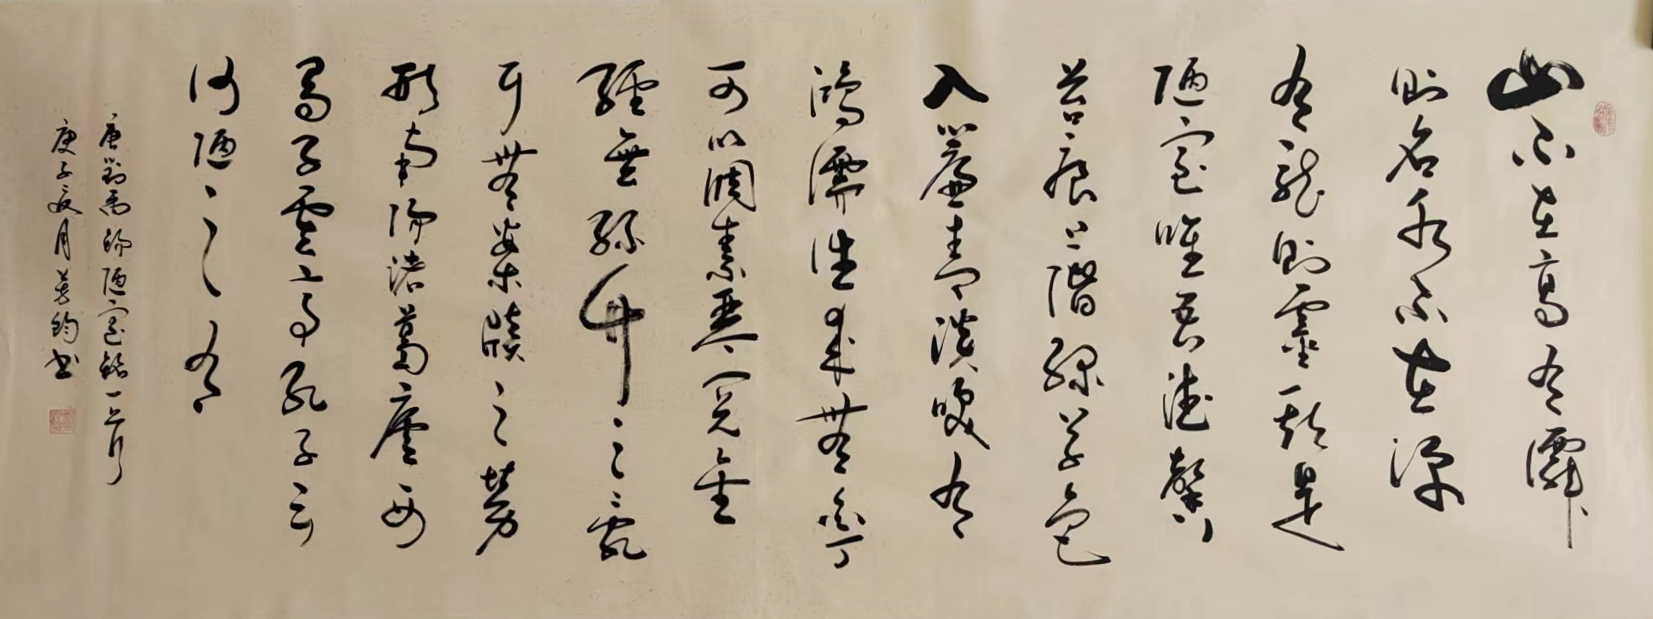 山不在高有僊
則名水不在深
有龍則靈斯是
陋室唯吾德馨
苔痕上階綠草色
入簾青談笑有
鴻儒往來無白丁
可以調素琴閱金
經無絲竹之亂
耳無案牘之勞
形南陽諸葛廬西
蜀子雲亭孔子云
何陋之有
唐劉禹錫陋室銘一首
庚子夏月 鈞书